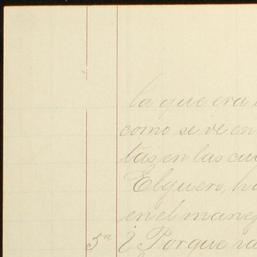 la que era
como se ve en
tas en las cue
Elguero, ha
en el mane
5ª ¿Porque ra